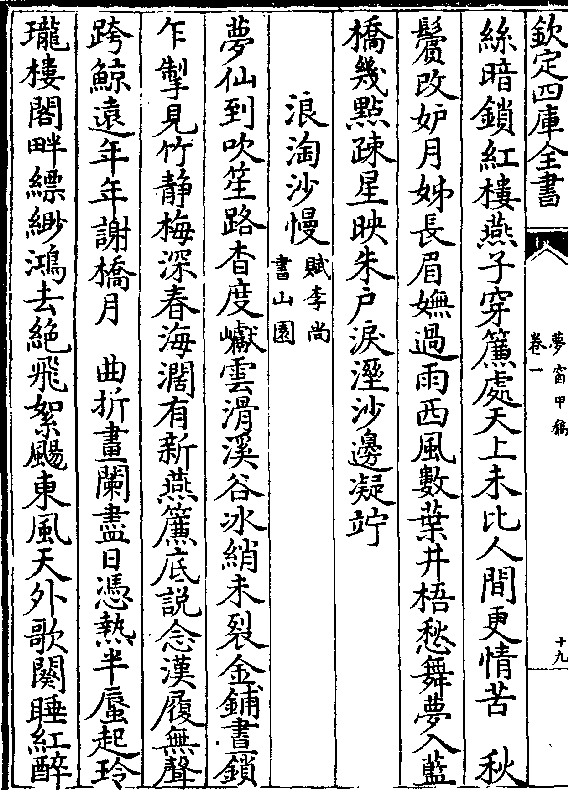 欽定四庫全書
夢窗甲稿
卷一
十九
絲暗鎖紅樓燕子穿簾處天上未比人間更情苦　秋
鬢改妒月姊長眉嫵過雨西風數葉井梧愁舞夢入藍
橋幾點疎星映朱户淚溼沙邊凝竚
浪淘沙慢賦李尚書山園
夢仙到吹笙路杳度巘雲滑溪谷冰綃未裂金鋪晝鎖
乍掣見竹靜梅深春海濶有新燕簾底説念漢履無聲
跨鯨遠年年謝橋月　曲折畫闌盡日憑熱半蜃起玲
瓏樓閣畔縹緲鴻去絶飛絮颺東風天外歌闋睡紅醉